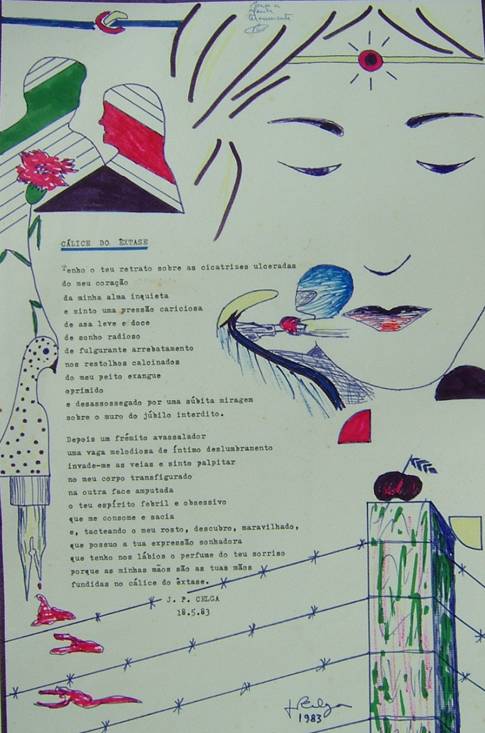 CÁLICE DO ÊXTASE
Tenho o teu retrato sobre as cicatrizes ulceradas
do meu coração
da minha alma inquieta
e sinto uma pressão cariciosa
de asa leve e doce
de sonho radioso
de fulgurante arrebatamento
nos restolhos calcinados
do meu peito exangue
oprimido
e desassossegado por uma súbita miragem
sobre o muro do júbilo interdito.
Depois um frémito avassalador
uma vaga melodiosa de íntimo deslumbramento
invade-me as veias e sinto palpitar
no meu corpo transfigurado
na outra face amputada
o teu espírito febril e obsessivo
que me consome e sacia
e, tacteando o meu rosto, descubro, maravilhado,
que possuo a tua expressão sonhadora
que tenho nos lábios o perfume do teu sorriso
porque as minhas mãos são as tuas mãos
fundidas no cálice do êxtase.
J. P. CELGA
18.5.83
1983